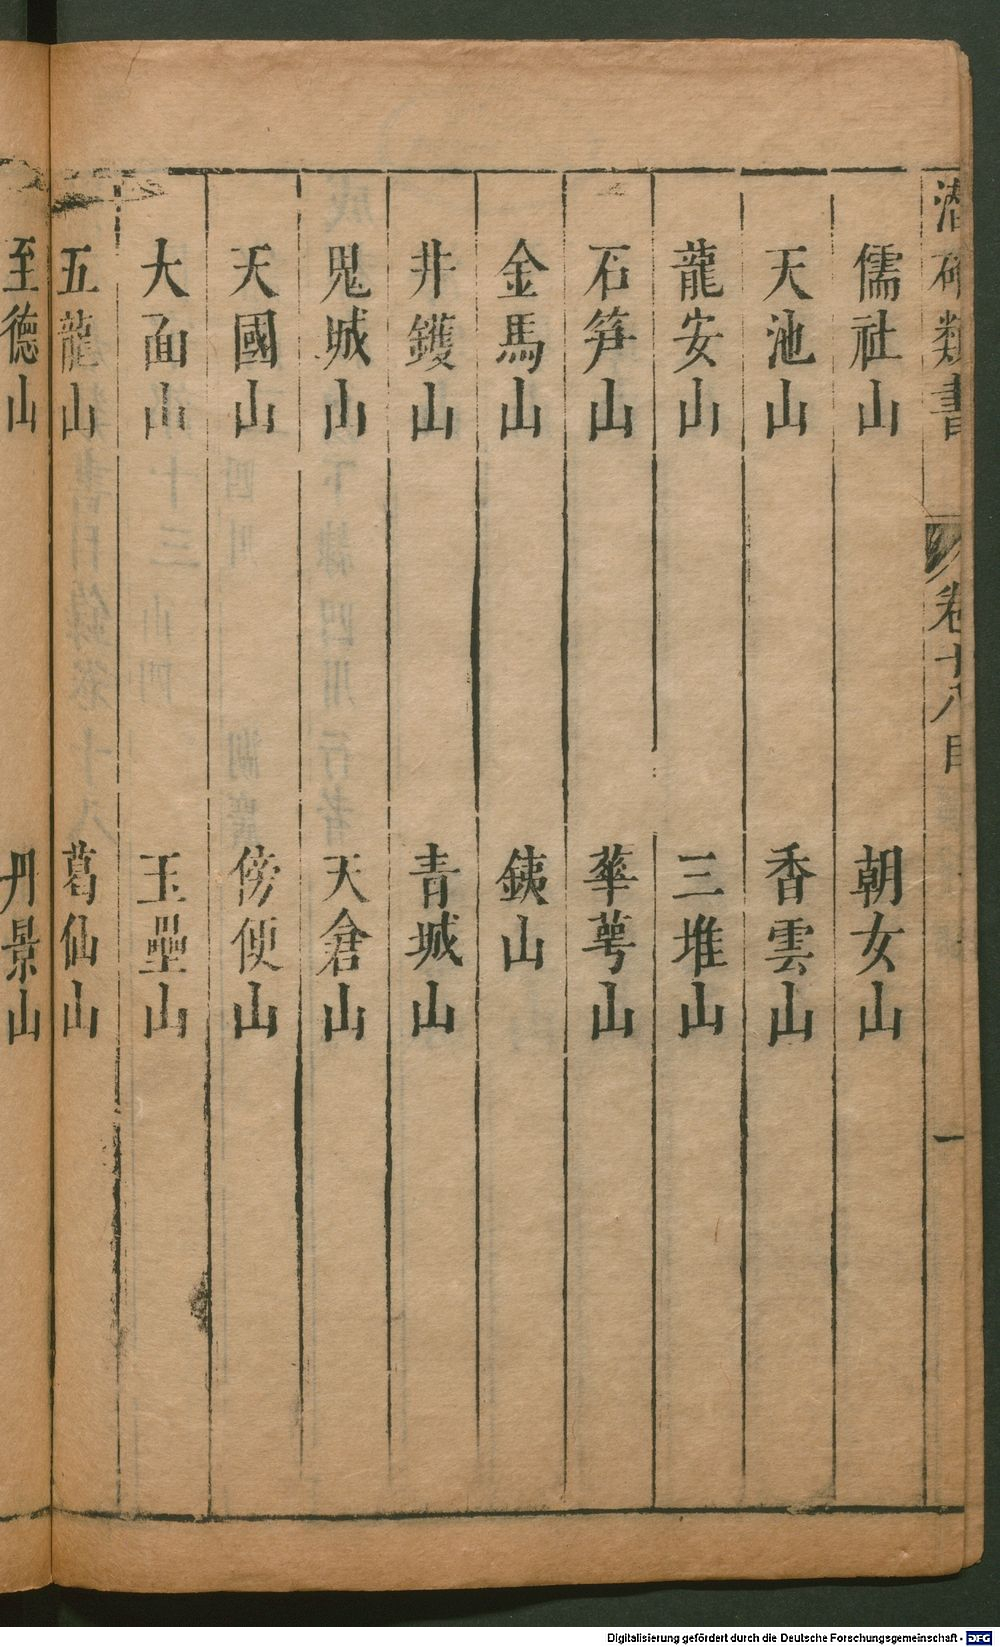 潜確類書 卷十八目 一
儒社山 朝女山
天池山 香雲山
龍安山 三堆山
石笋山 華萼山
金馬山 銕山
井鑊山 青城山
鬼城山 天倉山
天國山 傍便山
大面山 玉壘山
五龍山 葛仙山
至德山 丹景山
Digitalisierung gefördert durch die Deutsche Forschungsgemeinschaft - DFG